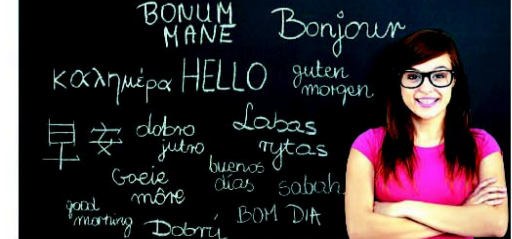 BONUM
MANE
Bonjour
καλημέρα
HELLO
guten
morgen
早安
dobro
jutro
Labas
rytas
Goeie
môre
buenos
días
sabah
good
morning
Dobrú
BOM DIA